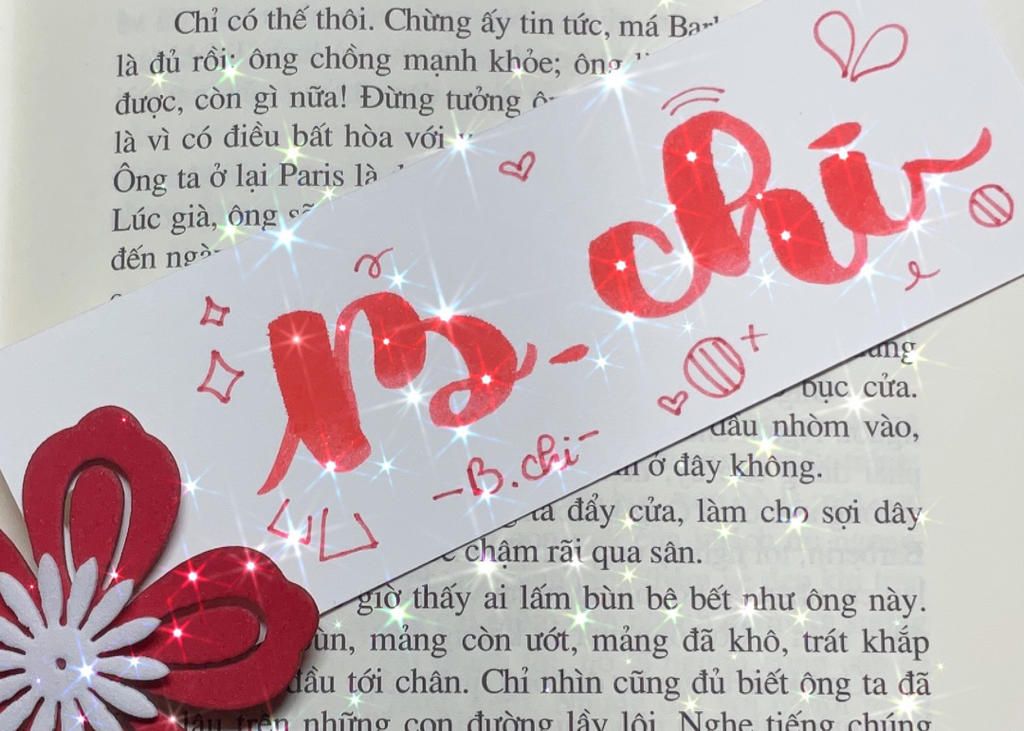 Chỉ có thế thôi. Chừng ấy tin tức, má
là đủ rồi: ông chồng mạnh khỏe; ông
được, còn gì nữa! Đừng tưởng
là vì có điều bất hòa với
Ông ta ở lại Paris là
Lúc già, ông
đến
B-chi
-B.chi-
bục cửa.
nhòm vào,
ở đây không.
ta đẩy cửa, làm cho sợi dây
chậm rãi qua sân.
giờ thấy ai lấm bùn bê bết như ông này.
mảng còn ướt, mảng đã khô, trát khắp
đầu tới chân. Chỉ nhìn cũng đủ biết ông ta đã
trên những con đường lầy lội. Nghe tiếng chúng